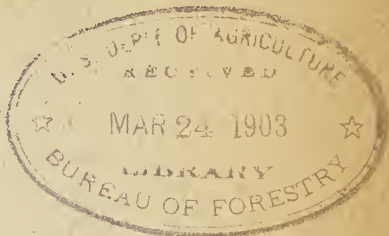 U. S. DEP'T OF AGRICULTURE
RECEIVED
☆ MAR 24 1903 ☆
LIBRARY
BUREAU OF FORESTRY